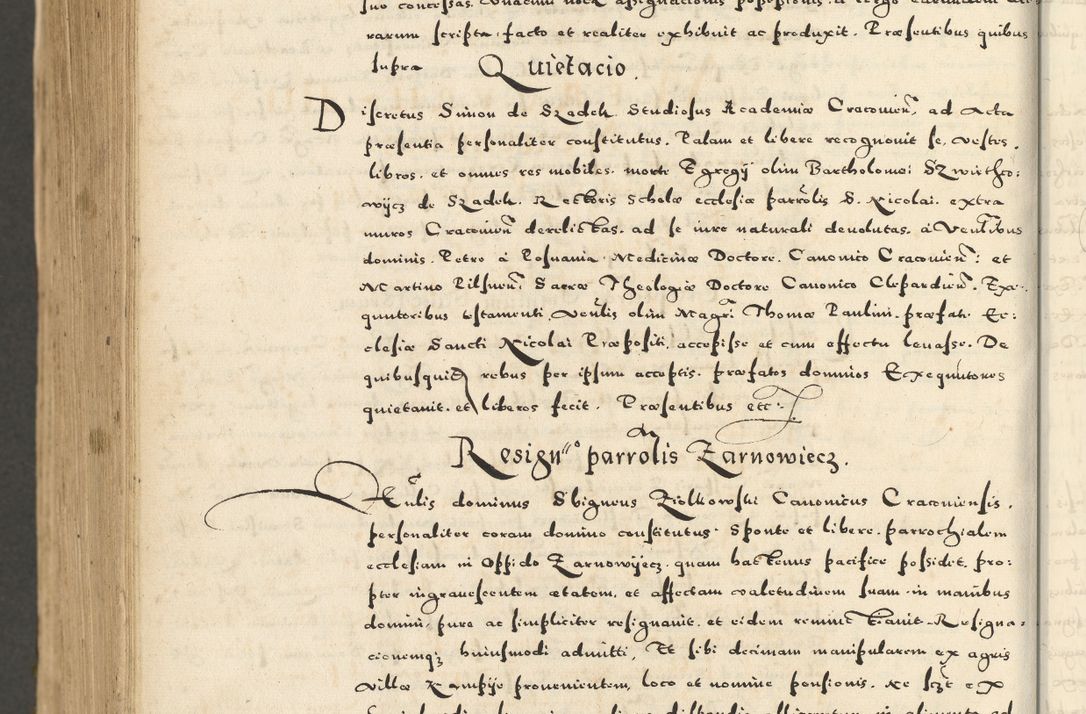 rarum scripta, facto et realiter exhibuit ac produxit. Præsentibus quibus
supra Quietacio.
Discretus Simon de Szadek Studiosus Academiæ Cracovien̄, ad acta
præsentia personaliter constitutus. Palam et libere recognouit se, vestes,
libros, et omnes res mobiles, morte Egregij olim Bartholomei Szwirthco:
wijcz de Szadek. Rectoris scholæ ecclesiæ parrōlis S. Nicolai. extra
muros Cracouien̄ derelictas. ad se iure naturali deuolutas. à Ven̄libus
dominis. Petro à Posnania. Medicinæ Doctore. Canonico Cracouien̄: et
Martino Pilsnen̄: Sacræ Theologiæ Doctore Canonico Clepardien̄. Exe-
quutoribus testamenti veñlis olim Magr̄i Thomæ Paulini. præfati. Ec:
clesiæ Sancti Nicolai Præpositi, accepisse et cum effectu leuasse. De
quibusquidem rebus per ipsum acceptis. præfatos dominos Ecxequutores
quietauit. et liberos fecit. Præsentibus etc:
Resign<sup>a</sup>° parrōlis Żarnowiecz.
Veñlis dominus Sbigneus Ziolkowski Canonicus Cracouiensis.
personaliter coram domino constitutus. Sponte et libere. parrochialem
ecclesiam in Oppido Żarnowijecz. quam hactenus pacifice possidet. pro:
pter ingrauescentem ætatem, et affectam valetudinem suam. in manibus
domini. pure ac simpliciter resignauit. et eidem renunctiauit. Resigna-
cionemqz huiusmodi admitti, Et sibi decimam manipularem ex agris
villæ Kempije prouenientem, loco et nomine pensionis.